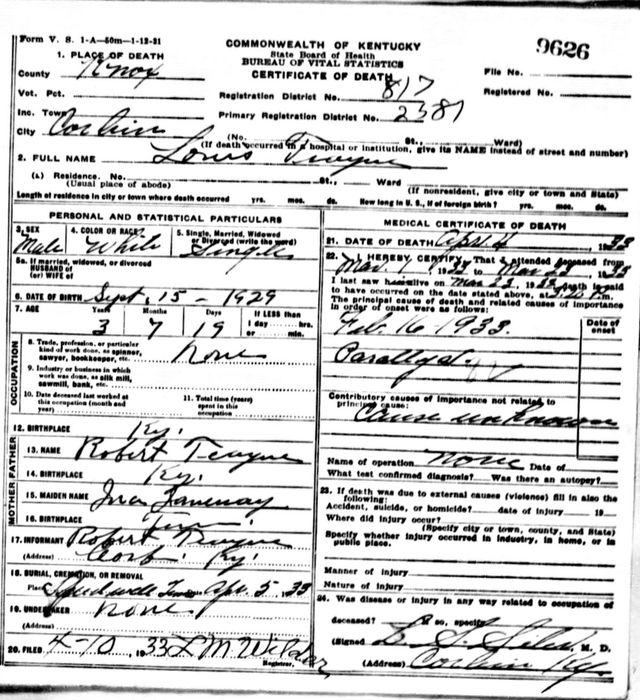 Form V. S. 1-A—50m—1-12-31
COMMONWEALTH OF KENTUCKY
State Board of Health
BUREAU OF VITAL STATISTICS
CERTIFICATE OF DEATH
9626
1. PLACE OF DEATH
County Knox
File No.
Registered No.
Vot. Pct.
Registration District No. 817
Inc. Town
Primary Registration District No. 2381
City Corbin
(No. St., Ward)
(If death occurred in a hospital or institution, give its NAME instead of street and number)
2. FULL NAME Louis
(a) Residence. No. St., Ward
(Usual place of abode) (If nonresident, give city or town and State)
Length of residence in city or town where death occurred yrs. mos. ds. How long in U. S., if of foreign birth? yrs. mos. ds.
PERSONAL AND STATISTICAL PARTICULARS
3. SEX Male
4. COLOR OR RACE White
5. Single, Married, Widowed or Divorced (write the word) Single
5a. If married, widowed, or divorced
HUSBAND of
(or) WIFE of
6. DATE OF BIRTH Sept. 15 - 1929
7. AGE Years 3 Months 7 Days 19 If LESS than 1 day hrs. or min.
OCCUPATION
8. Trade, profession, or particular kind of work done, as spinner, sawyer, bookkeeper, etc. None
9. Industry or business in which work was done, as silk mill, sawmill, bank, etc.
10. Date deceased last worked at this occupation (month and year)
11. Total time (years) spent in this occupation
12. BIRTHPLACE Ky.
FATHER
13. NAME Robert
14. BIRTHPLACE Ky.
MOTHER
15. MAIDEN NAME
16. BIRTHPLACE
17. INFORMANT Robert
(Address) Corb. Ky.
18. BURIAL, CREMATION, OR REMOVAL
Place Apr. 5, 33
19. UNDERTAKER none
20. FILED 4-10, 1933 L M Wilder
Registrar.
MEDICAL CERTIFICATE OF DEATH
21. DATE OF DEATH Apr. 4 1933
22. I HEREBY CERTIFY, That I attended deceased from
Mar. 1933 to Mar 22 1933
I last saw h alive on Mar 22, 1933 death is said
to have occurred on the date stated above, at m.
The principal cause of death and related causes of importance
in order of onset were as follows:
Date of onset
Feb. 16 1933.
Contributory causes of importance not related to
principal cause:
Cause unknown
Name of operation none Date of
What test confirmed diagnosis? Was there an autopsy?
23. If death was due to external causes (violence) fill in also the
following:
Accident, suicide, or homicide? date of injury 19
Where did injury occur?
(Specify city or town, county, and State)
Specify whether injury occurred in industry, in home, or in
public place.
Manner of injury
Nature of injury
24. Was disease or injury in any way related to occupation of
deceased? If so, specify
(Signed M. D.
(Address) Corbin Ky.